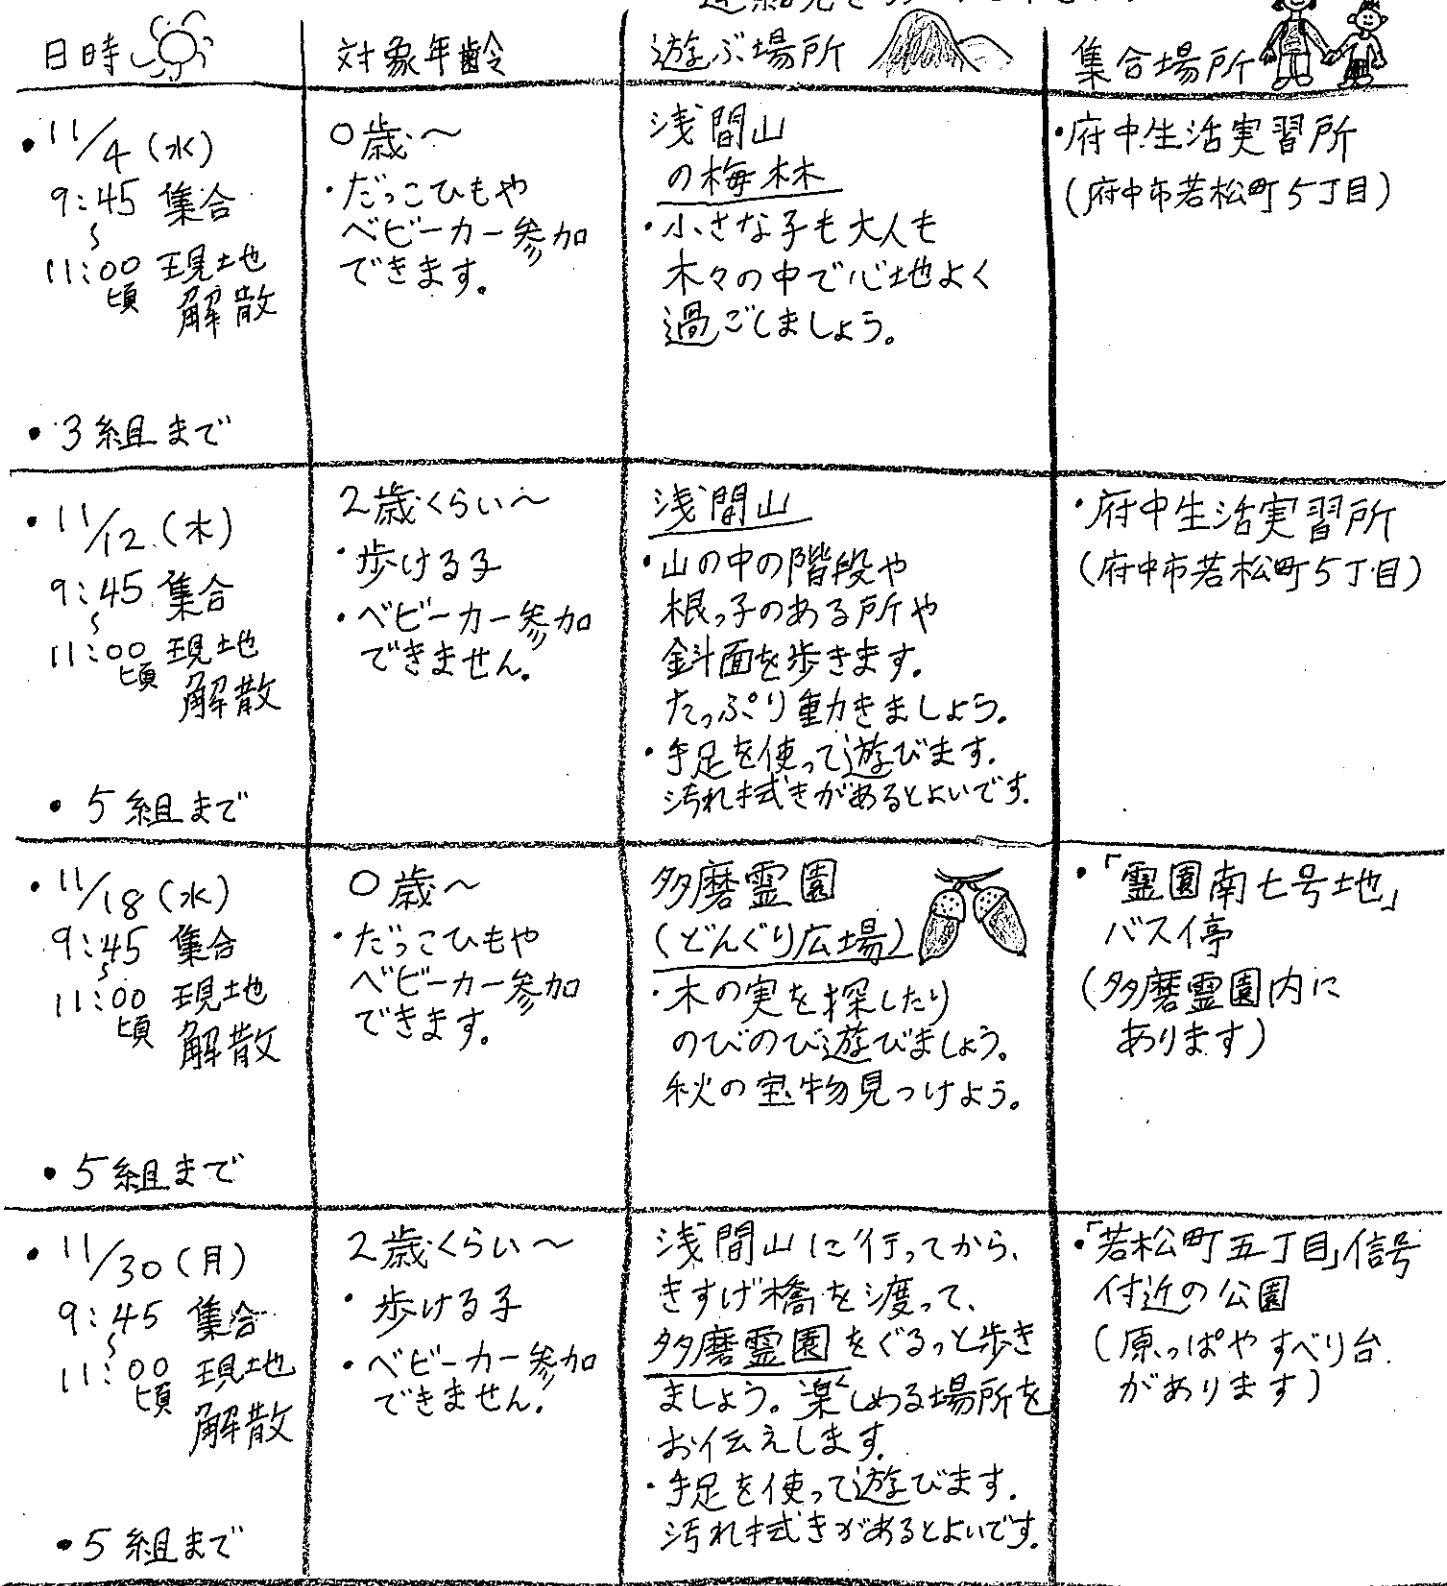 日時
対象年齢
遊ぶ場所
集合場所
・11/4(水)
9:45 集合
~
11:00 現地
頃 解散
・3組まで
0歳~
・だっこひもや
ベビーカー参加
できます。
浅間山
の梅林
・小さな子も大人も
木々の中で心地よく
過ごしましょう。
・府中生活実習所
(府中市若松町5丁目)
・11/12(木)
9:45 集合
~
11:00 現地
頃 解散
・5組まで
2歳くらい~
・歩ける子
・ベビーカー参加
できません。
浅間山
・山の中の階段や
根っ子のある所や
斜面を歩きます。
たっぷり動きましょう。
・手足を使って遊びます。
汚れ拭きがあるとよいです。
・府中生活実習所
(府中市若松町5丁目)
・11/18(水)
9:45 集合
~
11:00 現地
頃 解散
・5組まで
0歳~
・だっこひもや
ベビーカー参加
できます。
多磨霊園
(どんぐり広場)
・木の実を探したり
のびのび遊びましょう。
秋の宝物見つけよう。
・「霊園南七号地」
バス停
(多磨霊園内に
あります)
・11/30(月)
9:45 集合
~
11:00 現地
頃 解散
・5組まで
2歳くらい~
・歩ける子
・ベビーカー参加
できません。
浅間山に行ってから、
きすげ橋を渡って、
多磨霊園をぐるっと歩き
ましょう。楽しめる場所を
お伝えします。
・手足を使って遊びます。
汚れ拭きがあるとよいです。
・「若松町五丁目」信号
付近の公園
(原っぱやすべり台
があります)